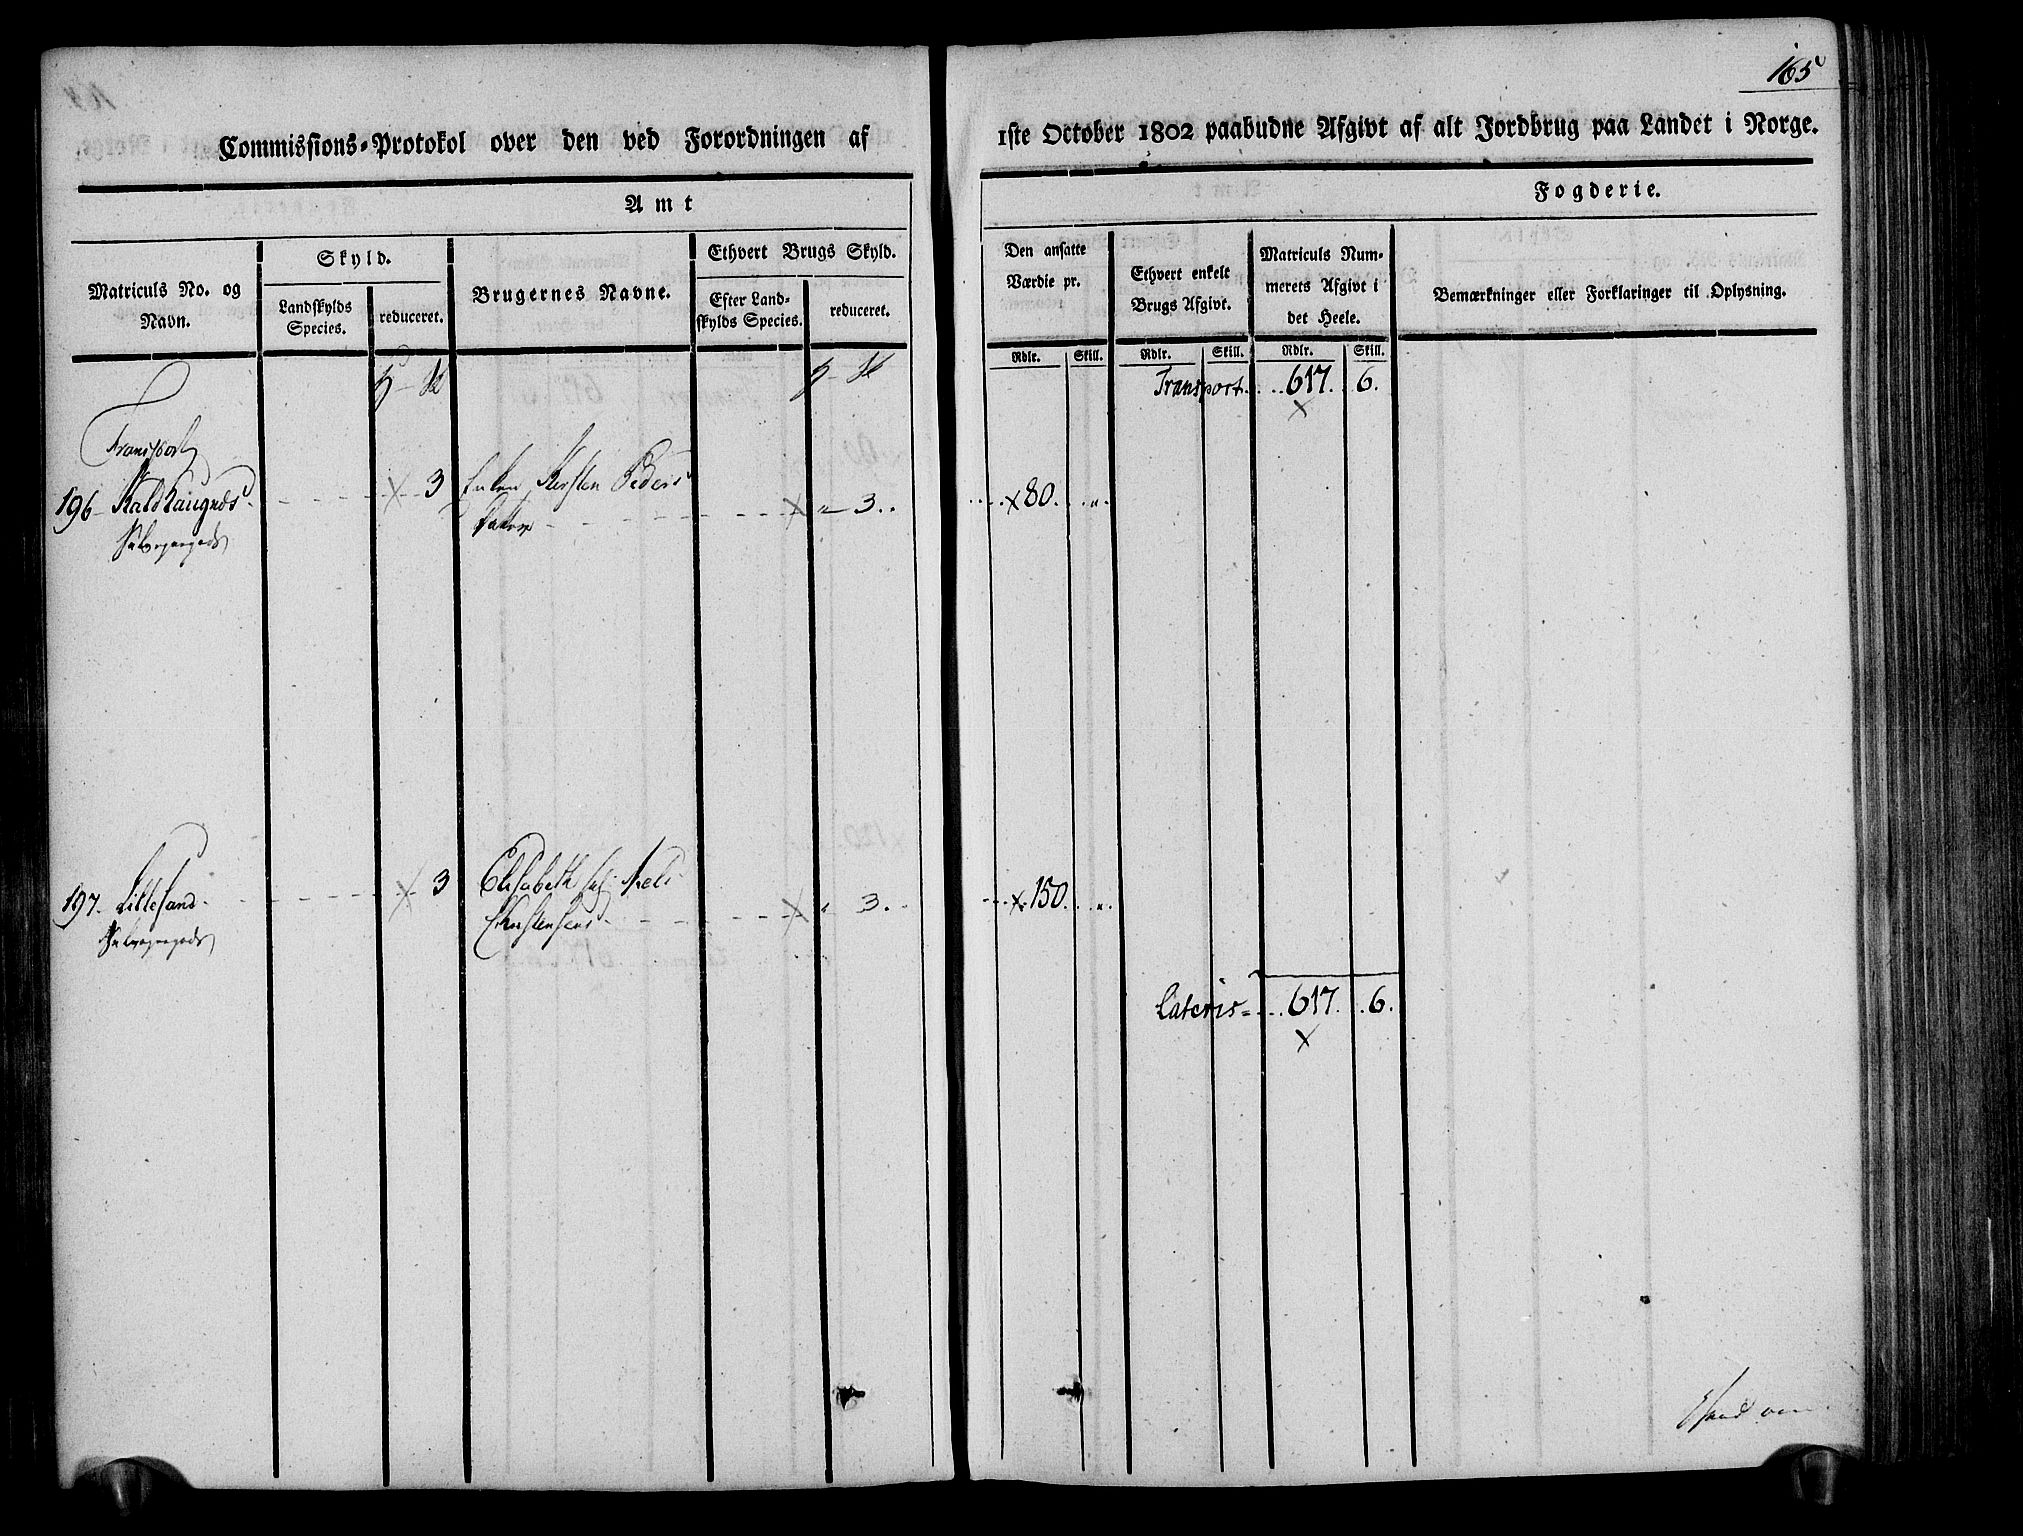 165
Commissions-Protokol over den ved Forordningen af
1ste October 1802 paabudne Afgivt af alt Jordbrug paa Landet i Norge.
Amt
Fogderie.
Matriculs No. og Navn.
Skyld.
Landskylds Species.
reduceret.
Brugernes Navne.
Ethvert Brugs Skyld.
Efter Landskylds Species.
reduceret.
Den ansatte Værdie pr.
Rdlr. Skill.
Ethvert enkelt Brugs Afgivt.
Rdlr. Skill.
Matriculs Nummerets Afgivt i det Heele.
Rdlr. Skill.
Bemærkninger eller Forklaringer til Oplysning.
Transport
Transport 617. 6.
196 3 Enken Kirsten Peders 3 80
197. Lillesand 3 Elisabeth sal: Niels 3. 150
Christensens
Lateris 617. 6.